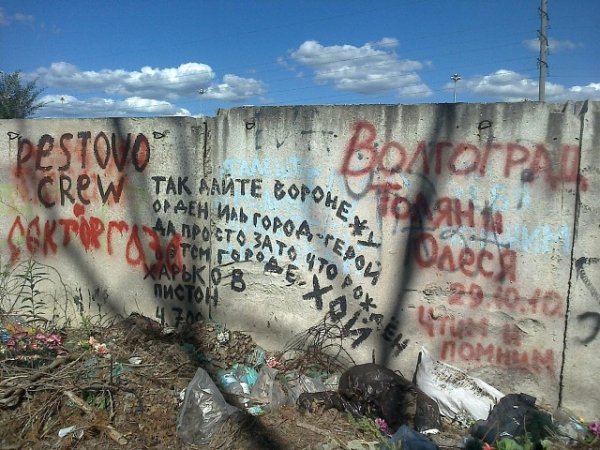 Pestovo
crew
ДОКТОР ГАЗА
ТАК ДАЙТЕ ВОРОНЕЖУ
ОРДЕН ИЛЬ ГОРОД-ГЕРОЙ
ДА ПРОСТО ЗА ТО ЧТО РОЖДЁН
В ЭТОМ ГОРОДЕ ХОЙ
ХАРЬКОВ
ПИСТОН
Волгоград
Толян и
Олеся
29.10.10.
Чтим и
помним